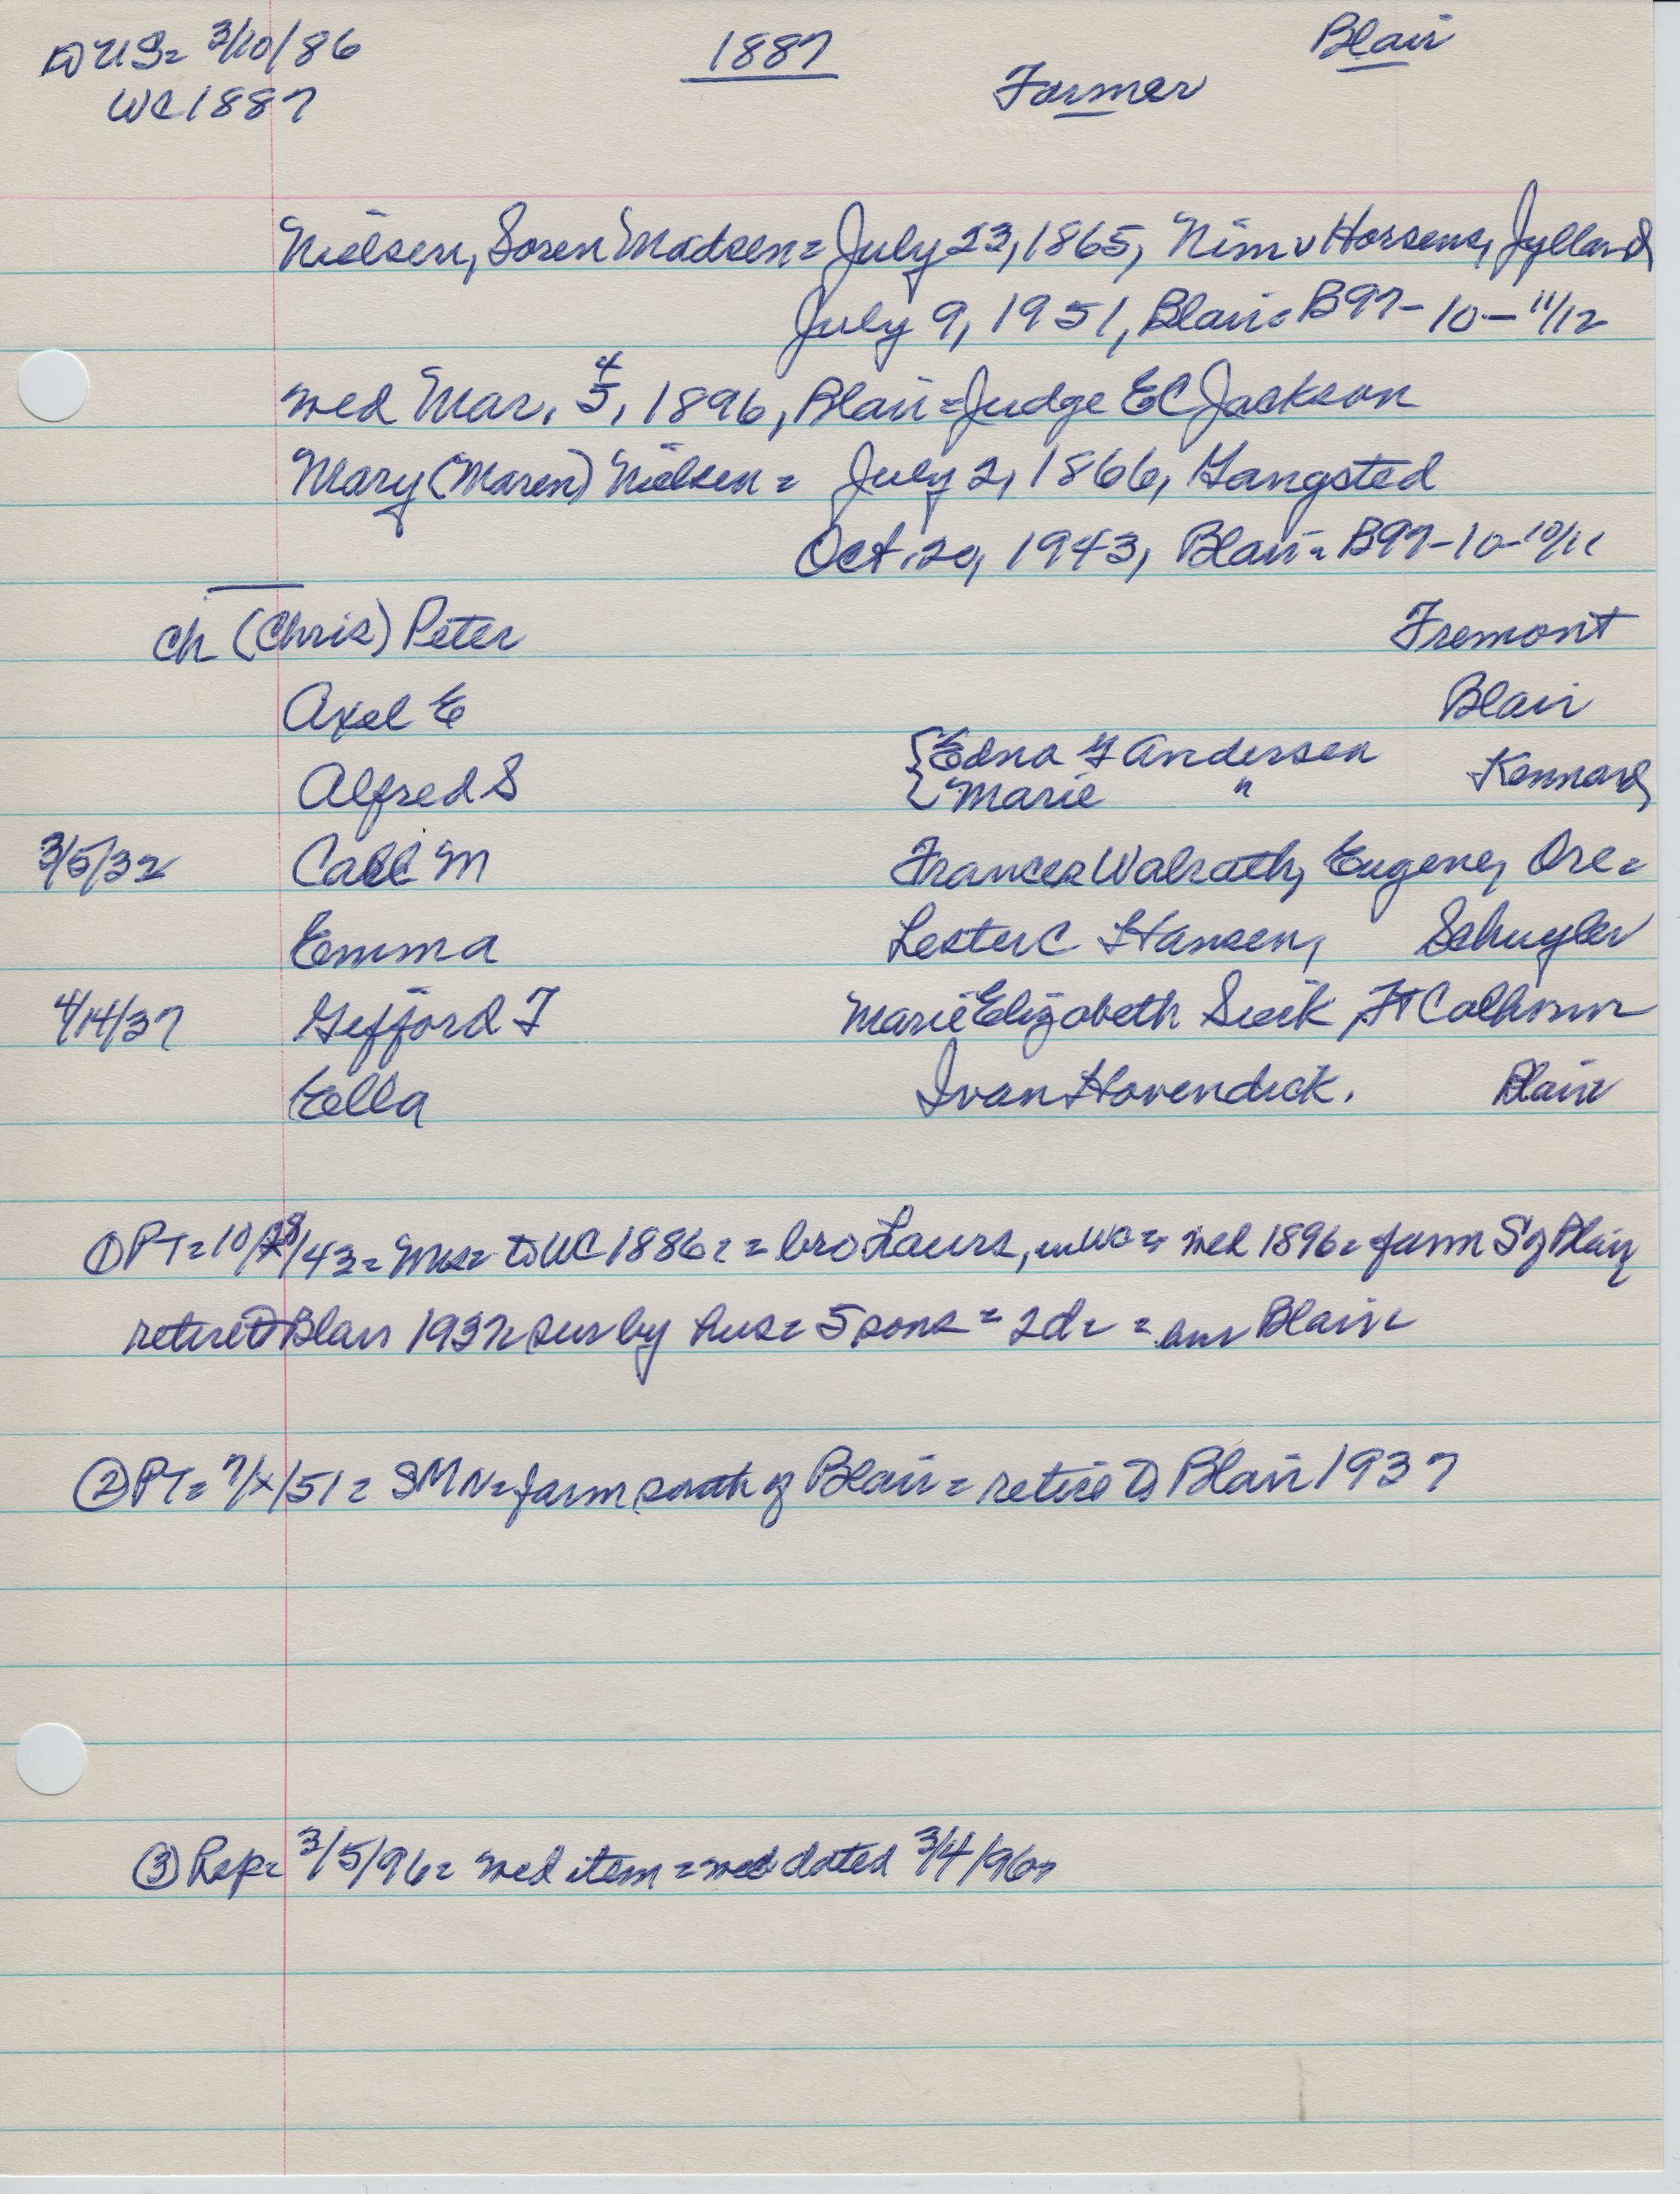 to US= 3/10/86 1887 Blair
WC 1887 Farmer
Nielsen, Soren Madsen= July 23, 1865, Nim v Horsens, Jylland
July 9, 1951, Blair= B97-10-11/12
wed Mar. 5, 4 1896, Blair= Judge EC Jackson
Mary (Maren) Nielsen= July 2, 1866, Gangsted
Oct. 20, 1943, Blair= B97-10-10/11
ch (Chris) Peter Fremont
Axel E Blair
Alfred S {Edna G Andersen Kennard
{Marie "
3/5/32 Call M Frances Walrath, Eugene, Ore=
Emma Lester C Hansen, Schuyler
4/14/37 Gifford F Marie Elizabeth Sieik, Ft Calhoun
Ella Ivan Hovendick. Blair
① PT= 10/28/43= Mrs= to WC 1886= = bro Laurs, in WC= wed 1896= farm S of Blair
retire to Blair 1937= sur by hus= 5 sons= 2d= = Blair=
② PT= 7/x/51= SMN= farm south of Blair= retire to Blair 1937
③ Rep= 3/5/96= wed item= wed dated 3/4/96=